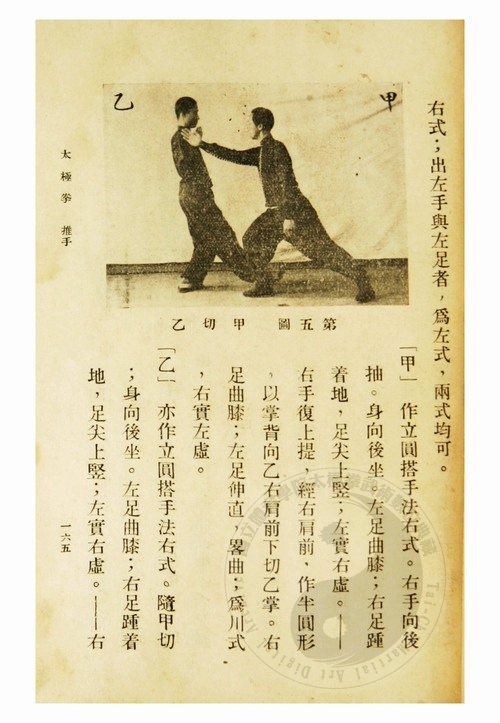 右式；出左手與左足者，爲左式，兩式均可。
甲
乙
第五圖　甲切乙
「甲」　作立圓搭手法右式。右手向後
抽。身向後坐。左足曲膝；右足踵
着地，足尖上竪；左實右虛。——
右手復上提，經右肩前，作半圓形
，以掌背向乙右肩前下切乙掌。右
足曲膝；左足伸直，畧曲；爲川式
，右實左虛。
「乙」　亦作立圓搭手法右式。隨甲切
；身向後坐。左足曲膝；右足踵着
地，足尖上竪；左實右虛。——右
太極拳　推手
一六五